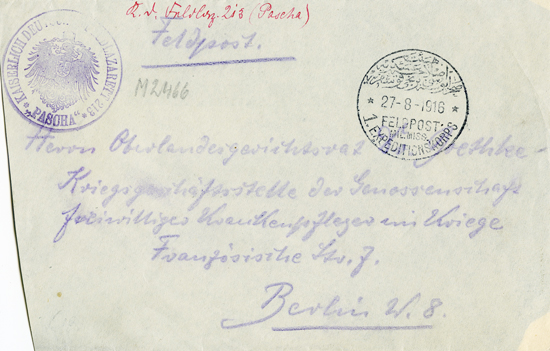 K. d. Feldlaz. 213 (Pascha)
Feldpost.
KAISERLICH DEUTSCHES FELDLAZARETT 213
"PASCHA"
M2466
* 27-8-1916 *
FELDPOST
MIL. MISS.
1. EXPEDITIONSKORPS
Herrn Oberlandesgerichtsrat
Kriegsgeschäftsstelle der Genossenschaft
freiwilliger Krankenpfleger im Kriege
Französische Str. 7.
Berlin W. 8.